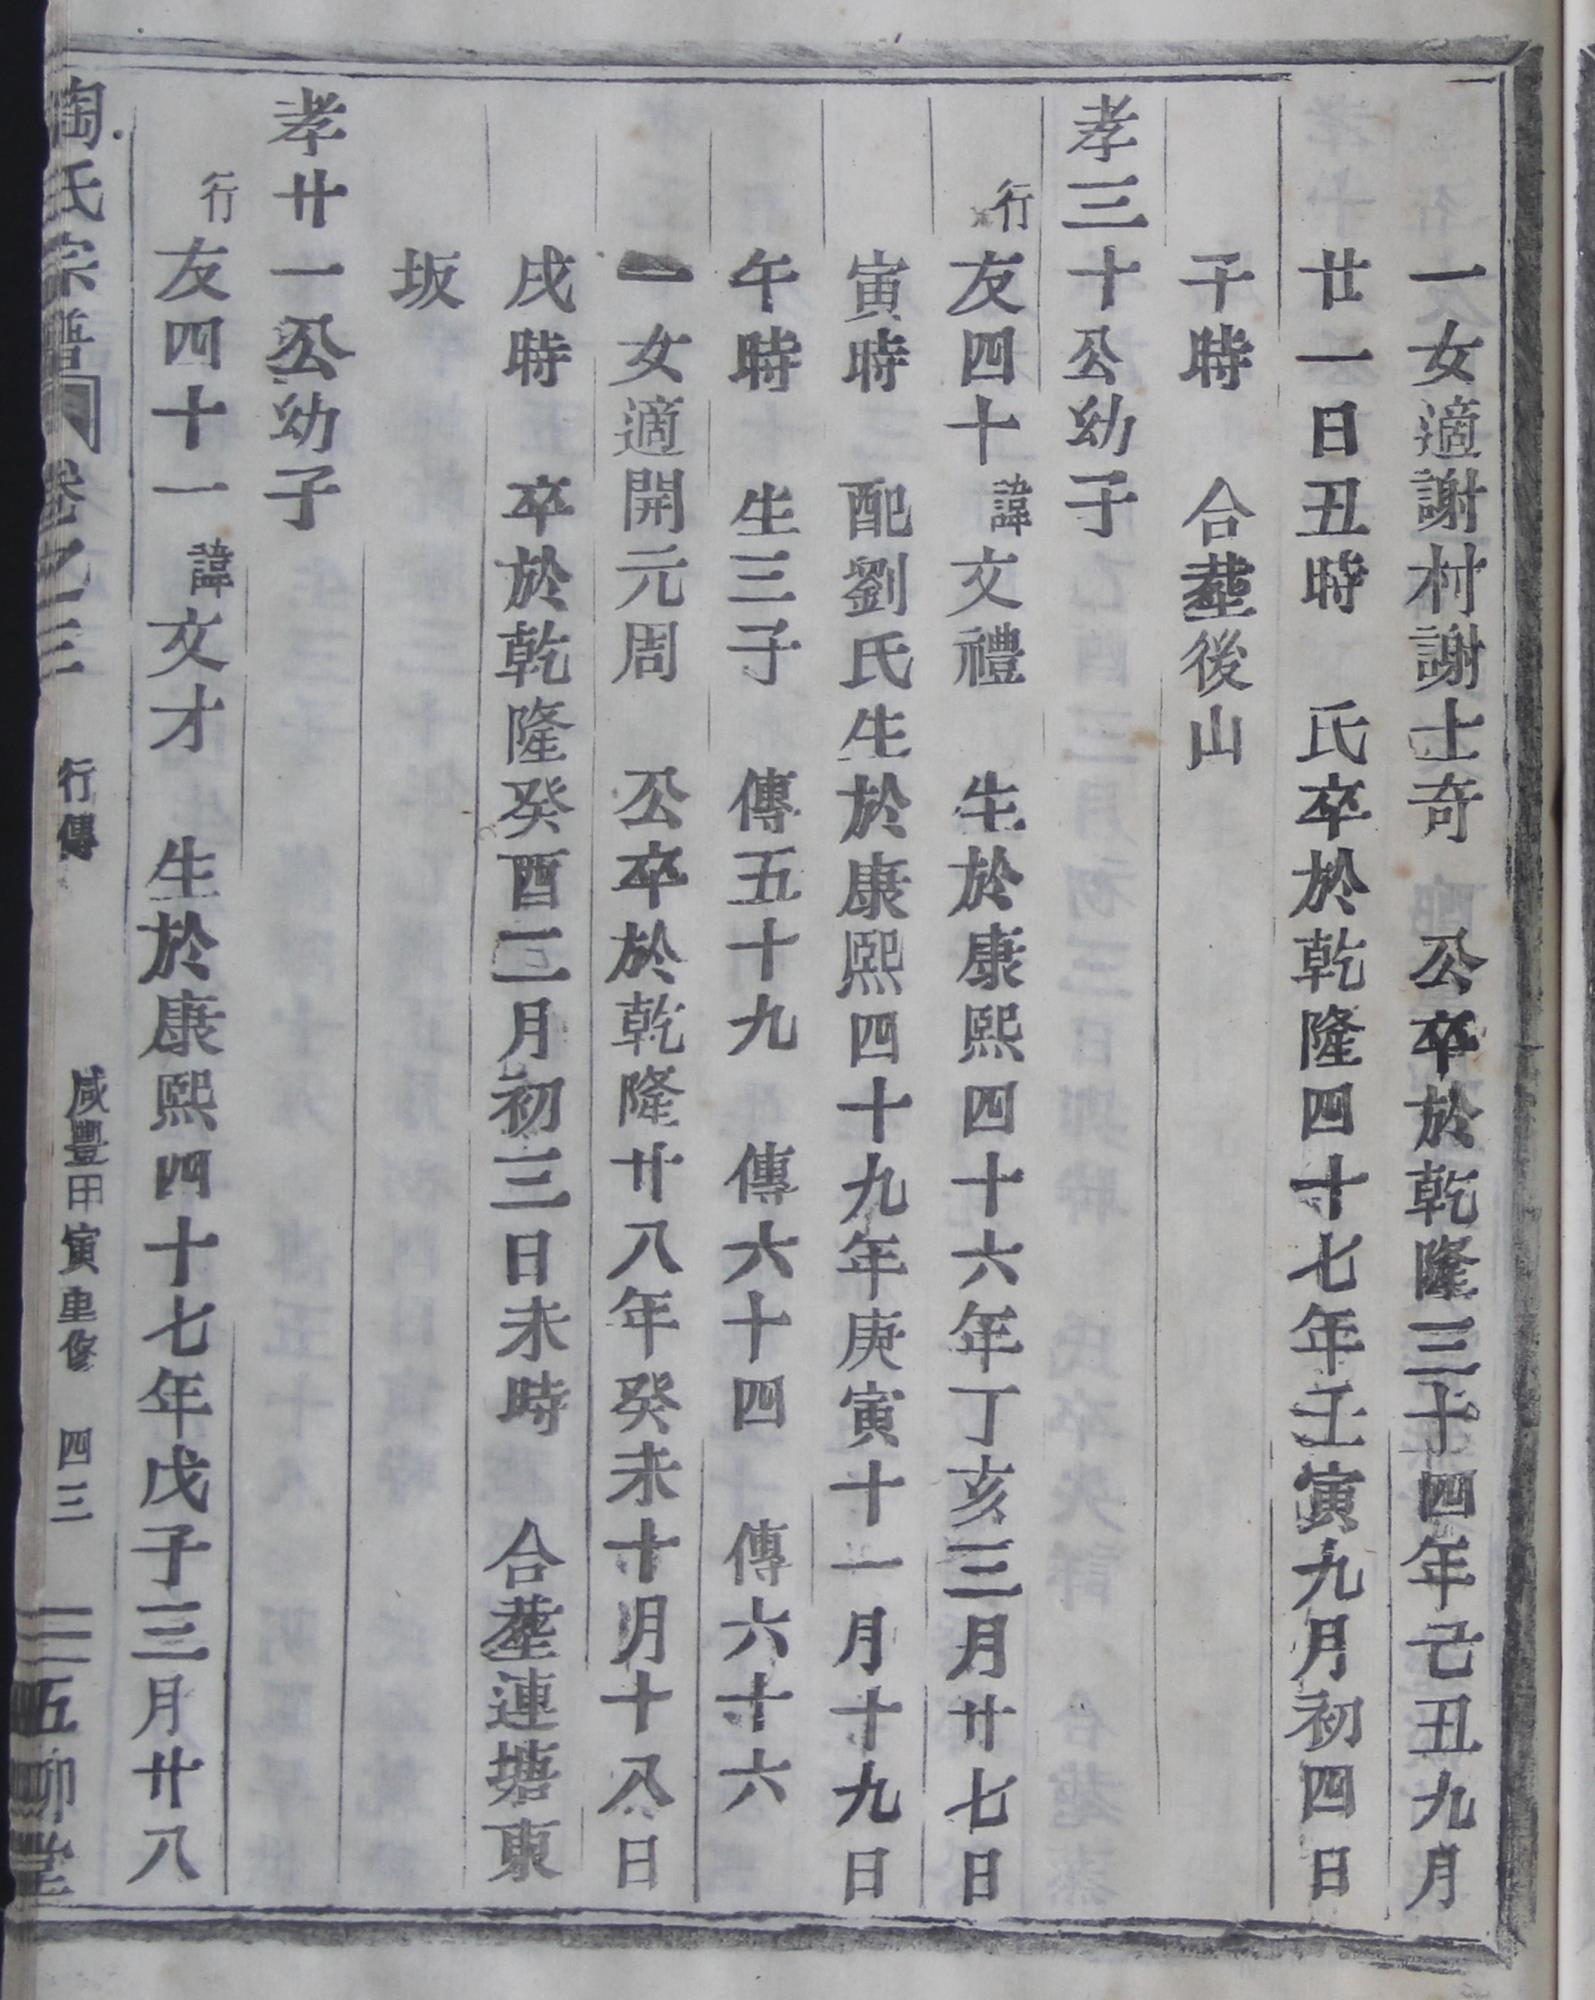 一女適謝村謝士奇　公卒於乾隆三十四年己丑九月
廿一日丑時　氏卒於乾隆四十七年壬寅九月初四日
午時　合塟後山
孝三十公幼子
行友四十諱文禮　生於康熙四十六年丁亥三月廿七日
寅時　配劉氏生於康熙四十九年庚寅十一月十九日
午時　生三子　傳五十九　傳六十四　傳六十六
一女適開元周　公卒於乾隆廿八年癸未十月十八日
戌時　卒於乾隆癸酉二月初三日未時　合塟連塘東
坂
孝廿一公幼子
行友四十一諱文才　生於康熙四十七年戊子三月廿八
陶氏宗譜　卷之三　行傳　咸豐甲寅重修　四三　五柳堂